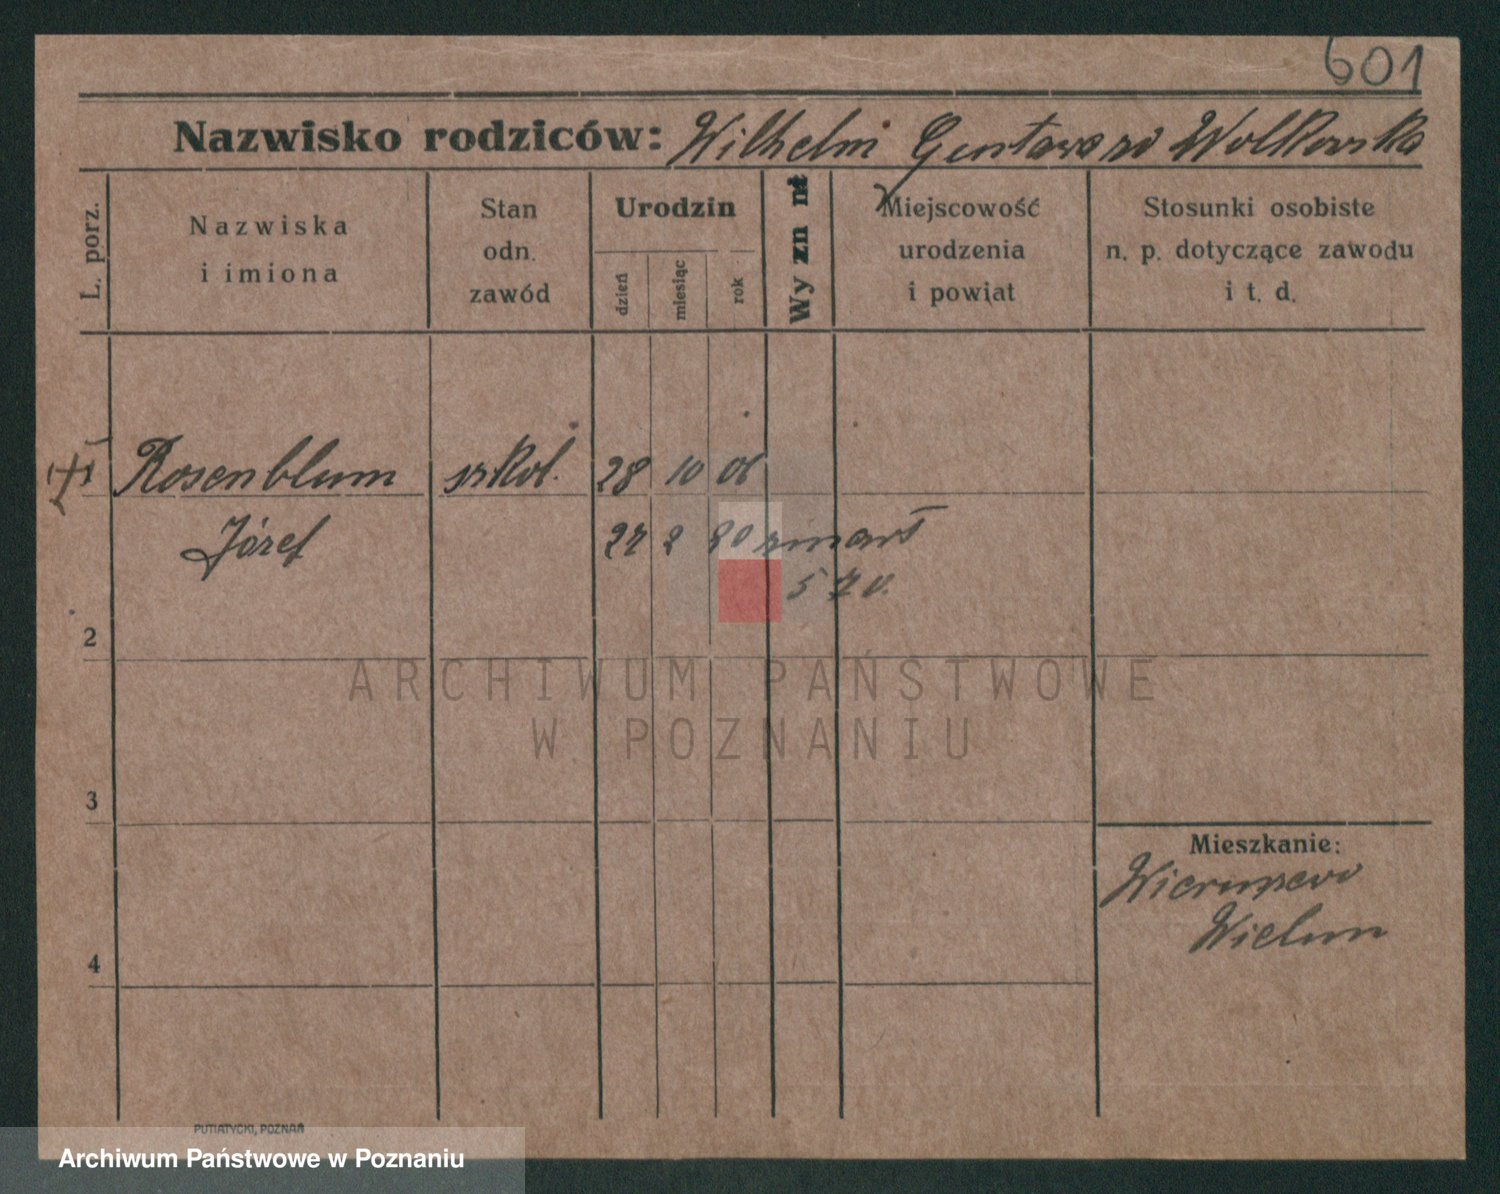 601
Nazwisko rodziców: Wilhelm Gustawa zd Wolkowska
L. porz.
Nazwiska
i imiona
Stan
odn.
zawód
Urodzin
dzień
miesiąc
rok
Wyzn
Miejscowość
urodzenia
i powiat
Stosunki osobiste
n. p. dotyczące zawodu
i t. d.
1 Rosenblum szkol. 28 10 06
Józef 27 2 20 zmarł
5 r.
2
3
4
Mieszkanie:
Wieruszow
Wielun
PUTIATYCKI, POZNAŃ
ARCHIWUM PAŃSTWOWE
W POZNANIU
Archiwum Państwowe w Poznaniu